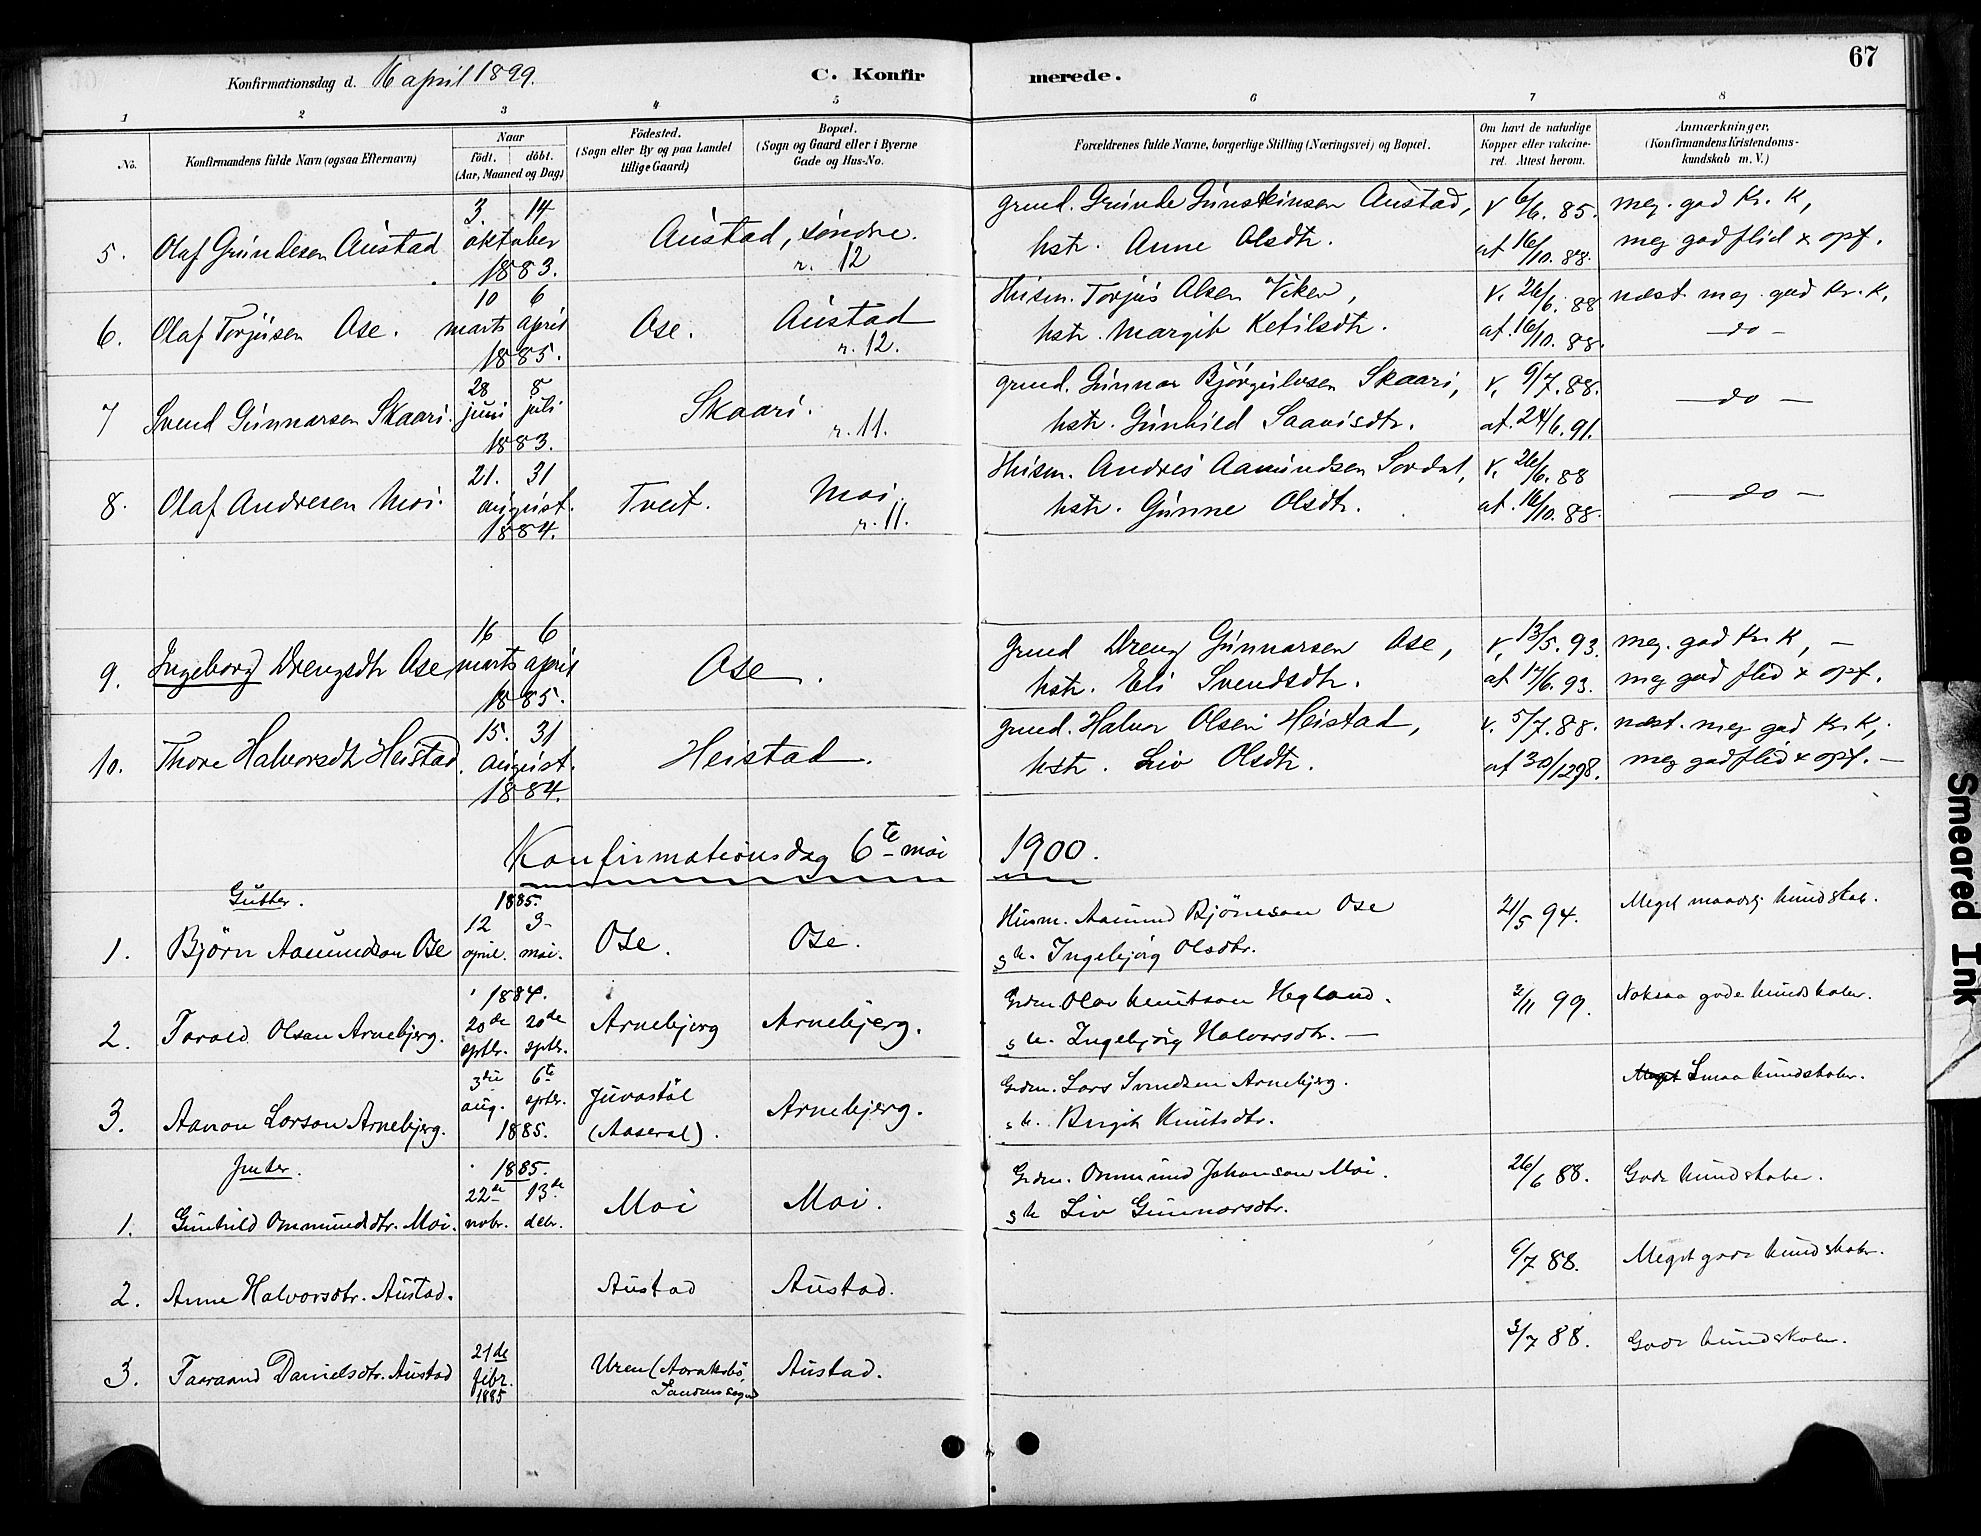 67
Konfirmationsdag d. 16 april 1899.
C. Konfirmerede.
1 2 3 4 5 6 7 8
No.
Konfirmandens fulde Navn (ogsaa Efternavn)
Naar
födt. döbt.
(Aar, Maaned og Dag)
Födested.
(Sogn eller By og paa Landet
tillige Gaard)
Bopæl.
(Sogn og Gaard eller i Byerne
Gade og Hus-No.
Forældrenes fulde Navne, borgerlige Stilling (Næringsvei) og Bopæl.
Om havt de naturlige
Kopper eller vakcine-
ret. Attest herom.
Anmærkninger.
(Konfirmandens Kristendoms-
kundskab m. V.)
5. Olaf Gründesen Aústad 3. 14 oktober 1883. Aústad, söndre. r. 12
grmd. Gründe Günsteinsen Austad, hstr. Anne Olsdtr.
v 6/6. 85. at 16/10. 88.
meg. god Kr. K, meg god flid & opf.
6. Olaf Torjúsen Ose. 10 marts 6 april 1885. Ose. Aústad r. 12.
Húsm. Torjús Olsen Viken, hstr. Margit Ketilsdtr.
v. 26/6. 88 at. 16/10. 88.
næst meg. god Kr. K. – do –
7 Svend Gúnnarsen Skaari. 28 juni 8 juli 1883. Skaari. r. 11.
grmd. Gúnnar Björgúlvsen Skaari, hstr. Gúnhild Saavisdtr.
v. 9/7. 88. at. 24/6. 91.
– do –
8. Olaf Andresen Moi. 21. 31 aúgúst. 1884. Tveit. Moi r. 11.
Húsm. Andres Aamúndsen Sordal, hstr. Gúnne Olsdtr.
v. 26/6. 88 at. 16/10. 88.
– do –
9. Ingeborg Drengsdtr Ose, 16 marts 6 april 1885. Ose.
Grmd Dreng Gúnnarsen Ose, hstr. Eli Svendsdtr.
v. 13/5. 93. at 17/6. 93.
meg. god Kr. K, – meg god flid & opf.
10. Thore Halvorsdtr Heistad. 15. 31 aúgúst. 1884. Heistad.
grmd. Halvor Olsen Heistad, hstr. Liv Olsdtr.
v. 5/7. 88. at 30/12 98.
næst. meg god Kr. K, meg god flid & opf. –
Konfirmationsdag 6te mai 1900.
Gútter.
1. Björn Aamundson Ose 1885. 12 april. 3 mai. Ose. Ose.
Húsm. Aamund Björnson Ose
s h. Ingebjörg Olsdtr.
21/5 94.
Meget maadelig kundskab.
2. Tarald Olson Arnebjerg. 1884. 20de sptbr. 20de sptbr. Arnebjerg Arnebjerg.
Grdm. Olav Knutson Hegland.
s h. Ingebjörg Halvorsdtr. –
3/11 99.
Noksaa gode kundskaber.
3. Aanon Larson Arnebjerg. 3die aug. 6te sptbr. 1885. Juvastöl (Aaseral). Arnebjerg.
Grdm. Lars Svendsen Arnebjerg.
s h. Birgit Knutsdtr.
Smaa kundskaber.
Jenter.
1. Gúnhild Ommundsdtr. Moi. 1885. 22de novbr. 13de debr. Moi Moi.
Grdm. Ommund Johanson Moi.
s h Liv Gúnnarsdtr.
26/6 88.
Gode kundskaber.
2. Anne Halvorsdtr. Aústad. Aústad Aústad.
6/7 88.
Meget gode kundskaber.
3. Taaraand Danielsdtr. Aústad 21de febr. 1885 Uren (Aoraksbö, Sandnes sogn Aústad.
3/7 88.
Gode kundskaber.
Smeared Ink